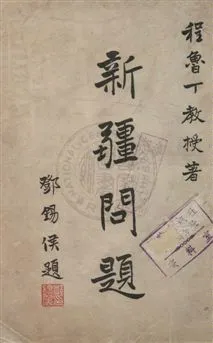 程魯丁教授著
新疆問題
鄧錫侯題